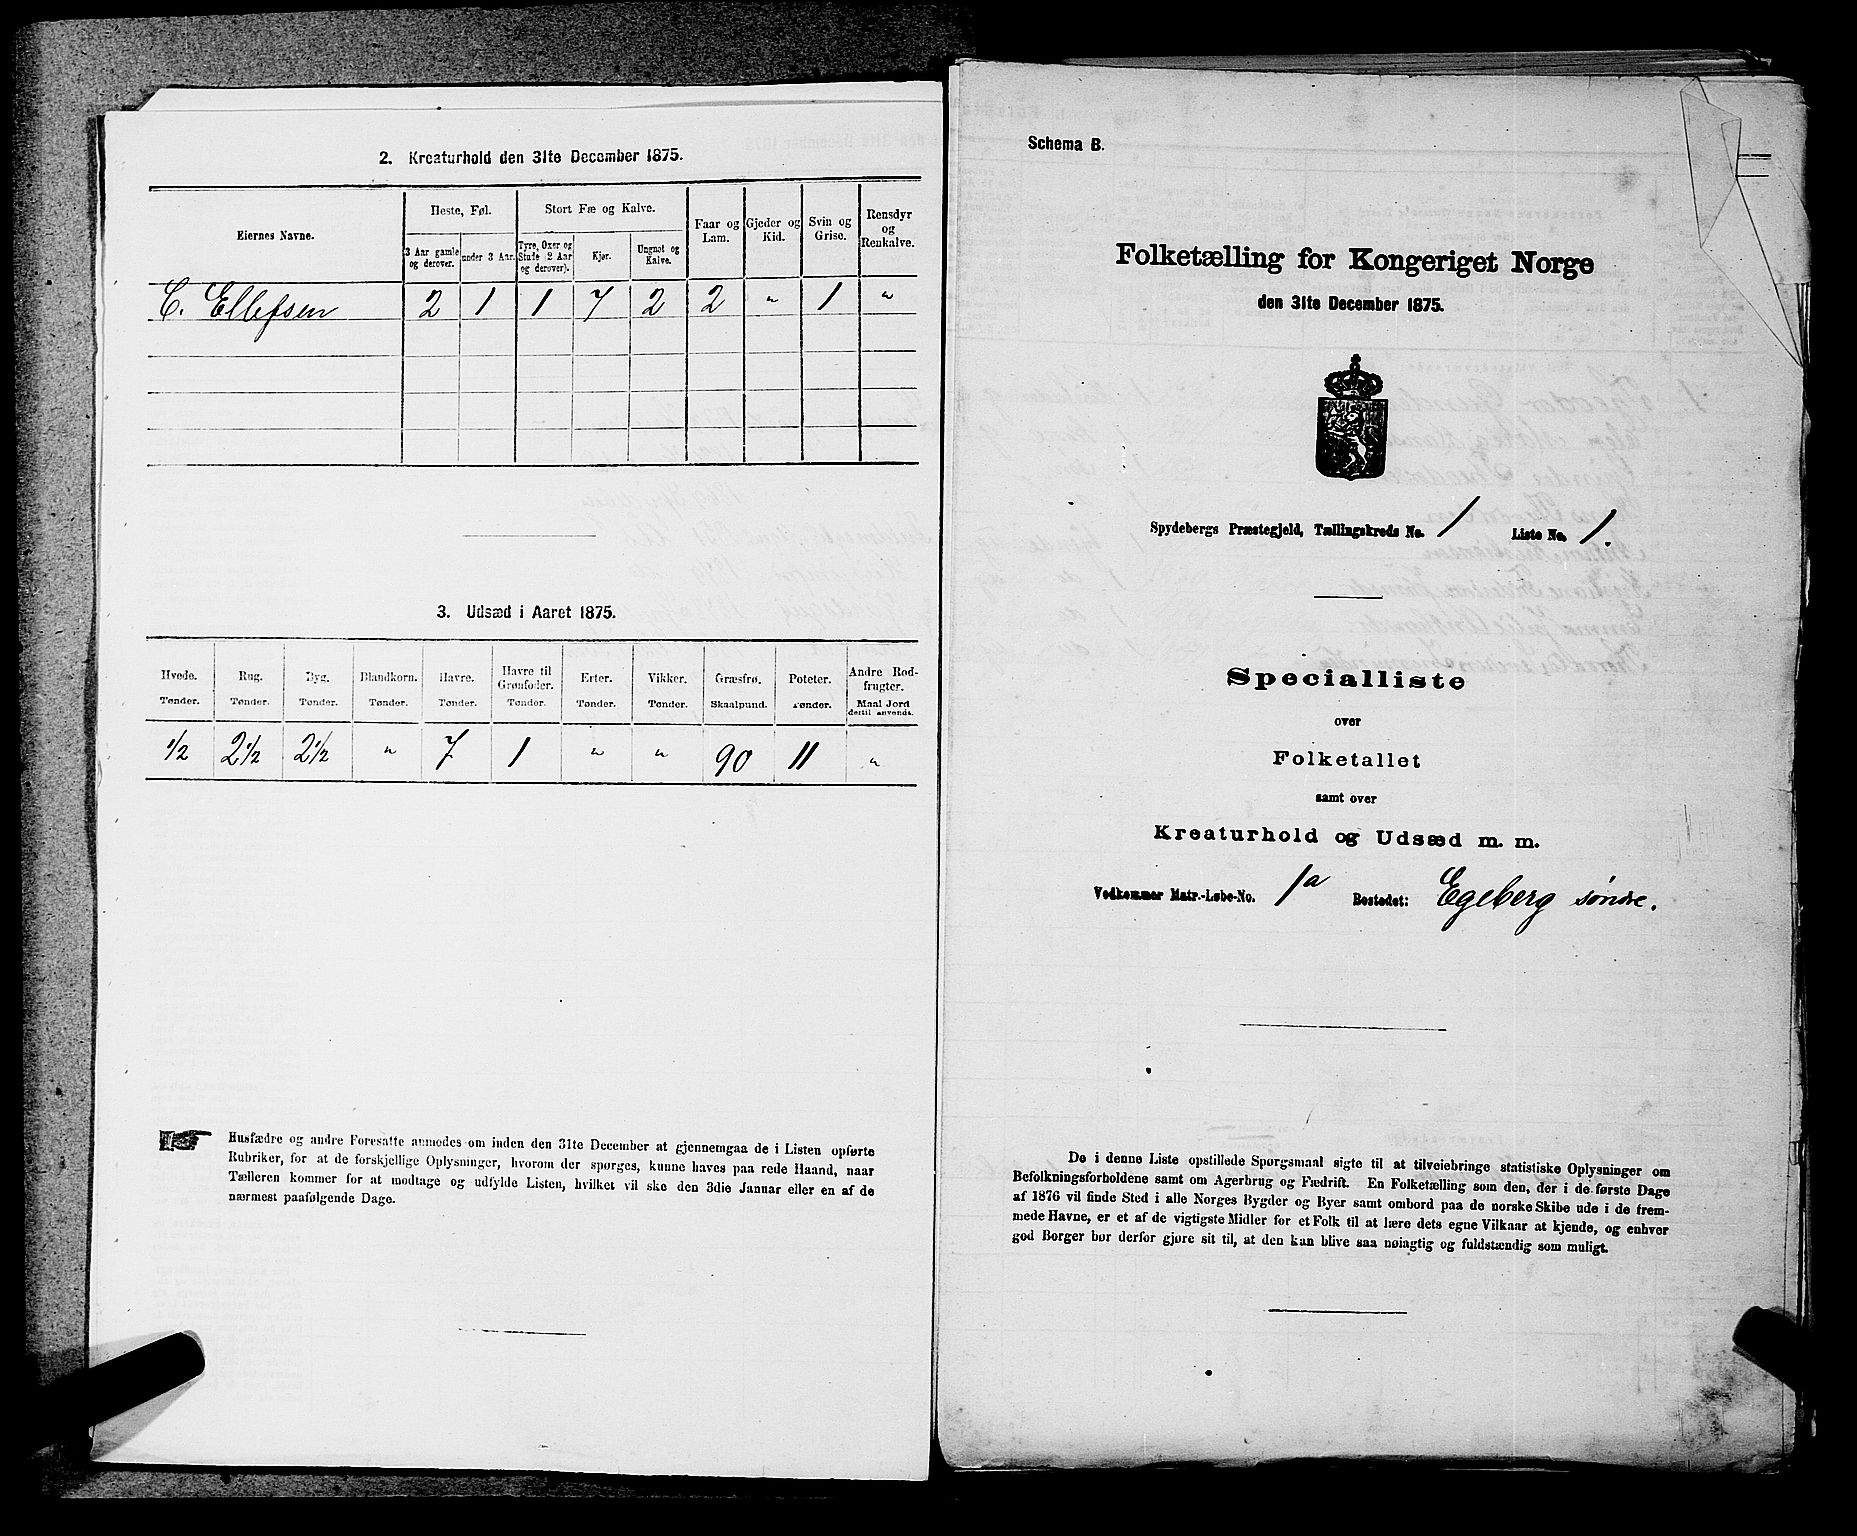 2. Kreaturhold den 31te December 1875.
Eiernes Navne.
Heste, Føl.
3 Aar gamle og derover.
under 3 Aar.
Stort Fæ og Kalve.
Tyre, Oxer og Stude (2 Aar og derover).
Kjør.
Ungnøt og Kalve.
Faar og Lam.
Gjeder og Kid.
Svin og Grise.
Rensdyr og Renkalve.
C. Ellefsen 2 1 1 7 2 2 " 1 "
3. Udsæd i Aaret 1875.
Hvede. Rug. Byg. Blandkorn. Havre. Havre til Grønfoder. Erter. Vikker. Græsfrø. Poteter. Andre Rodfrugter.
Tønder. Tønder. Tønder. Tønder. Tønder. Tønder. Tønder. Tønder. Skaalpund. Tønder. Maal Jord dertil anvendt.
1/2 2 1/2 2 1/2 " 7 1 " " 90 11 "
Husfædre og andre Foresatte anmodes om inden den 31te December at gjennemgaa de i Listen opførte
Rubriker, for at de forskjellige Oplysninger, hvorom der spørges, kunne haves paa rede Haand, naar
Tælleren kommer for at modtage og udfylde Listen, hvilket vil ske den 3die Januar eller en af de
nærmest paafølgende Dage.
Schema B.
Folketælling for Kongeriget Norge
den 31te December 1875.
Spydebergs Præstegjeld, Tællingskreds No. 1 Liste No. 1.
Specialliste
over
Folketallet
samt over
Kreaturhold og Udsæd m. m.
Vedkommer Matr.-Løbe-No. 1a Bostedet: Egeberg søndre.
De i denne Liste opstillede Spørgsmaal sigte til at tilveiebringe statistiske Oplysninger om
Befolkningsforholdene samt om Agerbrug og Fædrift. En Folketælling som den, der i de første Dage
af 1876 vil finde Sted i alle Norges Bygder og Byer samt ombord paa de norske Skibe ude i de frem-
mede Havne, er et af de vigtigste Midler for et Folk til at lære dets egne Vilkaar at kjende, og enhver
god Borger bør derfor gjøre sit til, at den kan blive saa nøiagtig og fuldstændig som muligt.